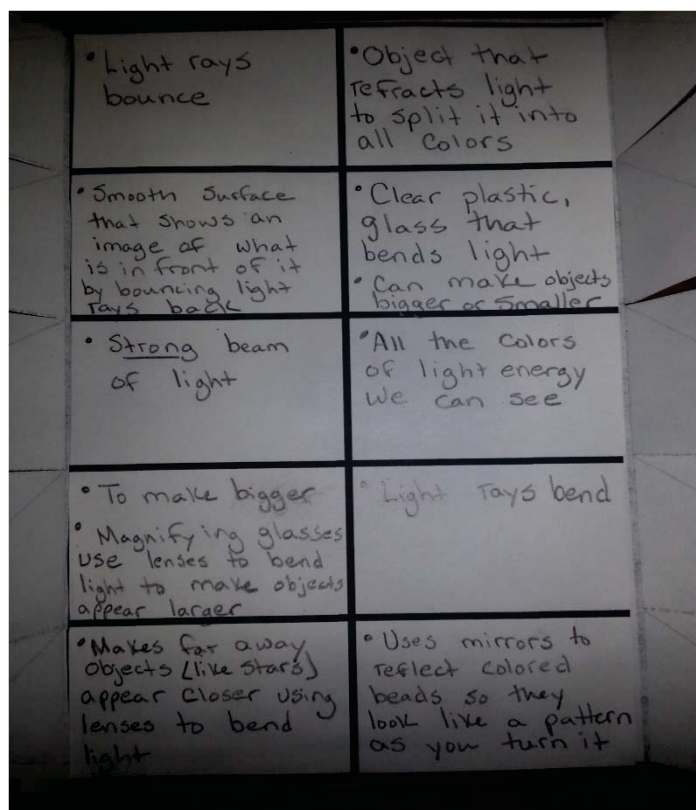 • Light rays
bounce
• Object that
refracts light
to split it into
all colors
• Smooth surface
that shows an
image of what
is in front of it
by bouncing light
rays back
• Clear plastic,
glass that
bends light
• Can make objects
bigger or smaller
• Strong beam
of light
• All the colors
of light energy
we can see
• To make bigger
• Magnifying glasses
use lenses to bend
light to make objects
appear larger
• Light rays bend
• Makes far away
objects (like stars)
appear closer using
lenses to bend
light
• Uses mirrors to
reflect colored
beads so they
look like a pattern
as you turn it